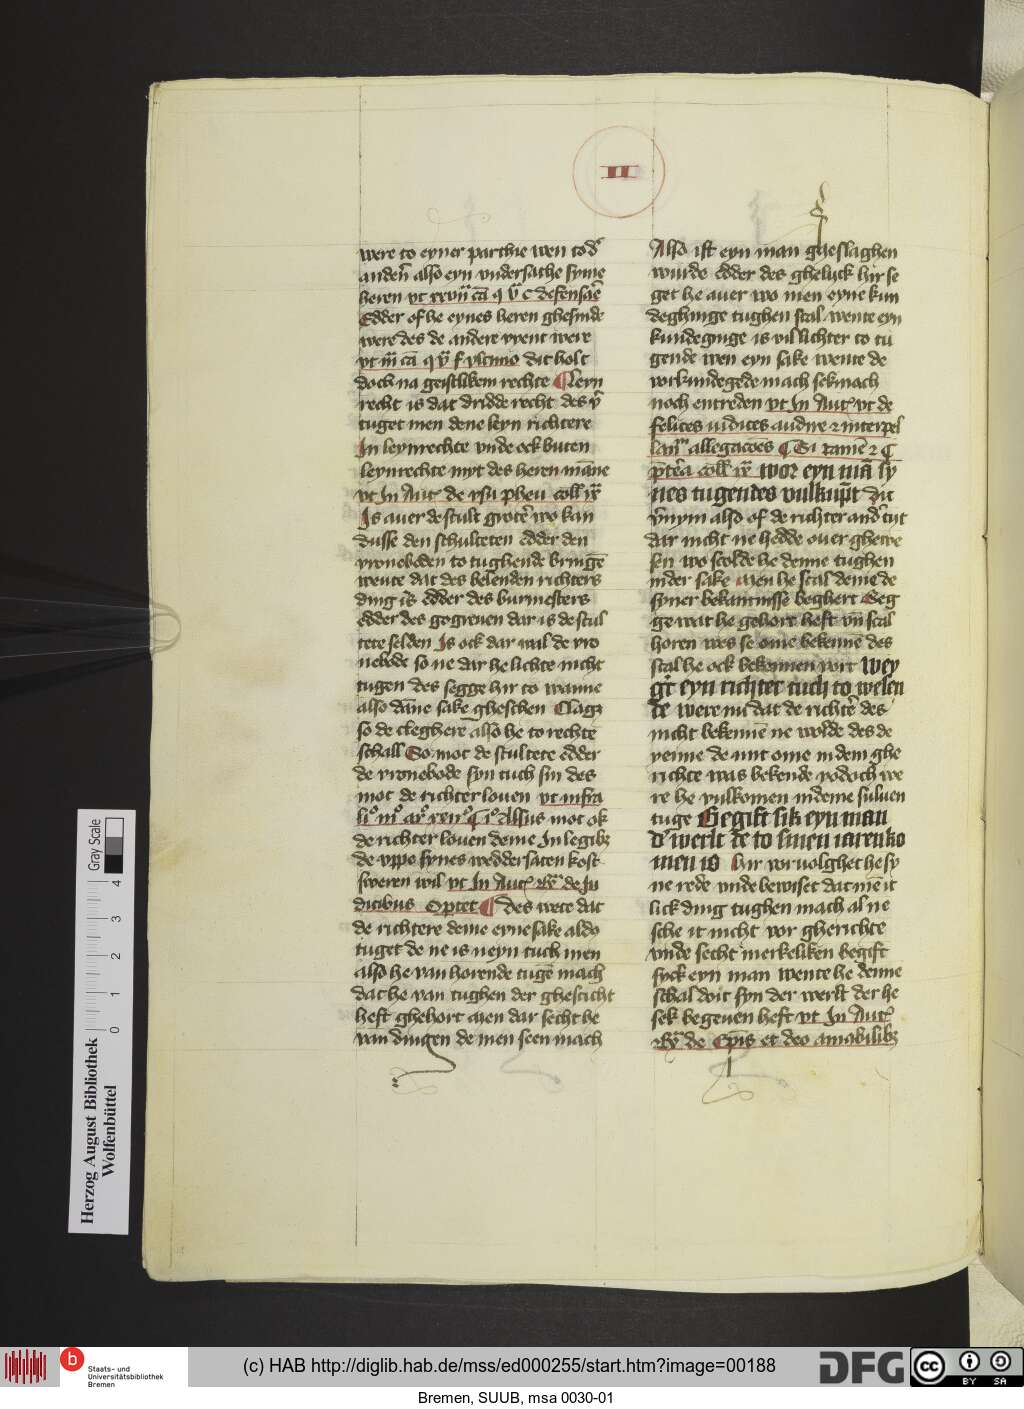 II
were to eyner parthie wen tod᷒
anden̄ also eyn vndersathe syme
heren vt xxviī ca̅ q v̄ c defensaē
Edder of he eynes heren ghesinde
were des de andere vrent were
vt iij ca̅ q v̄ f vltimo dit holt
doch na geistlikem rechte ¶ Leyn
recht is dat dridde recht des v̄
tuget men dene leyn richtere
In leynrechte vnde ock buten
leynrechte myt des heren ma̅ne
vt In Aut de vsu pheu coll ix
Is auer de stult grote᷒ wo kan
dusse den schulteten edder den
vroneboden to tughende bringē
wente dat des belenden richters
ding is edder des burmesters
edder des gogreuen dar is de scul
tete selden Is ock dar wal de vro
nebode so ne dar he lichte nicht
tugen des segge hir to wanne
also dane sake gheschen Clagꝫ
so de cleghere also he to rechte
schall So mot de stultete edder
de vronebode syn tuch sin des
mot de richter louen vt infra
li᷒ iii᷒ ar᷒ xxv᷒ ¶ i᷒ Alsus mot ok
de richter louen deme In legibꝫ
de vppe synes weddersaten kost
sweren wil vt In Aut de Ju
dicibus Optet ¶ Des wete dat
de richtere deme eyne sake aldꝰ
tuget de ne is neyn tuch men
also he van horende tugē mach
dat he van tughen der ghescicht
heft ghehort Men dar secht he
van dingen de men seen mach
Also ist eyn man gheslaghen
wurde edder des gheluck hir se
get he auer wo men eyne kun
deghinge tughen scal wente eyn
kundeginge is vil lichter to tu
gende wen eyn sake wente de
vorkundegede mach sek mach
noch entreden vt In Aut vt de
felites iudices audire ⁊ interpel
lan᷒ allegacoēs ¶ Si tamē ⁊ ¶
p̄terea coll ix Wor eyn mā sy
nes tugendes vulkūpt Dit
v̄nym also of de richter and᷒ tut
dar nicht ne hedde ouer ghewe
sen wo scolde he denne tughen
in der sake Men he scal deme de
syner bekantnisse beghert Seg
ge wat he gehort heft vn̄ scal
horen wes se ome bekenne des
scal he ock bekennen vort Wey
gt᷒ eyn richter tuch to welen
de were nu dat de richte᷒ des
nicht bekennē ne wolde des de
yenne de mit ome in dem ghe
richte was bekende yodoch we
re he vulkomen in deme suluen
tuge Begift sik eyn man
d᷒ werlt de to sinen iaren ko
men is Hir vorvolghet he sy
ne rede vnde bewiset dat mē it
lick ding tughen mach al ne
sche it nicht vor gherichte
vnde secht merkeliken begift
syck eyn man wente he denne
schal doit syn der werlt der he
sek begeuen heft vt In Aut
de Ep̄is et deo amabilibꝫ
Herzog August Bibliothek
Wolfenbüttel
Gray Scale
0 1 2 3 4
b Staats- und
Universitätsbibliothek
Bremen
(c) HAB http://diglib.hab.de/mss/ed000255/start.htm?image=00188
DFG
cc BY SA
Bremen, SUUB, msa 0030-01